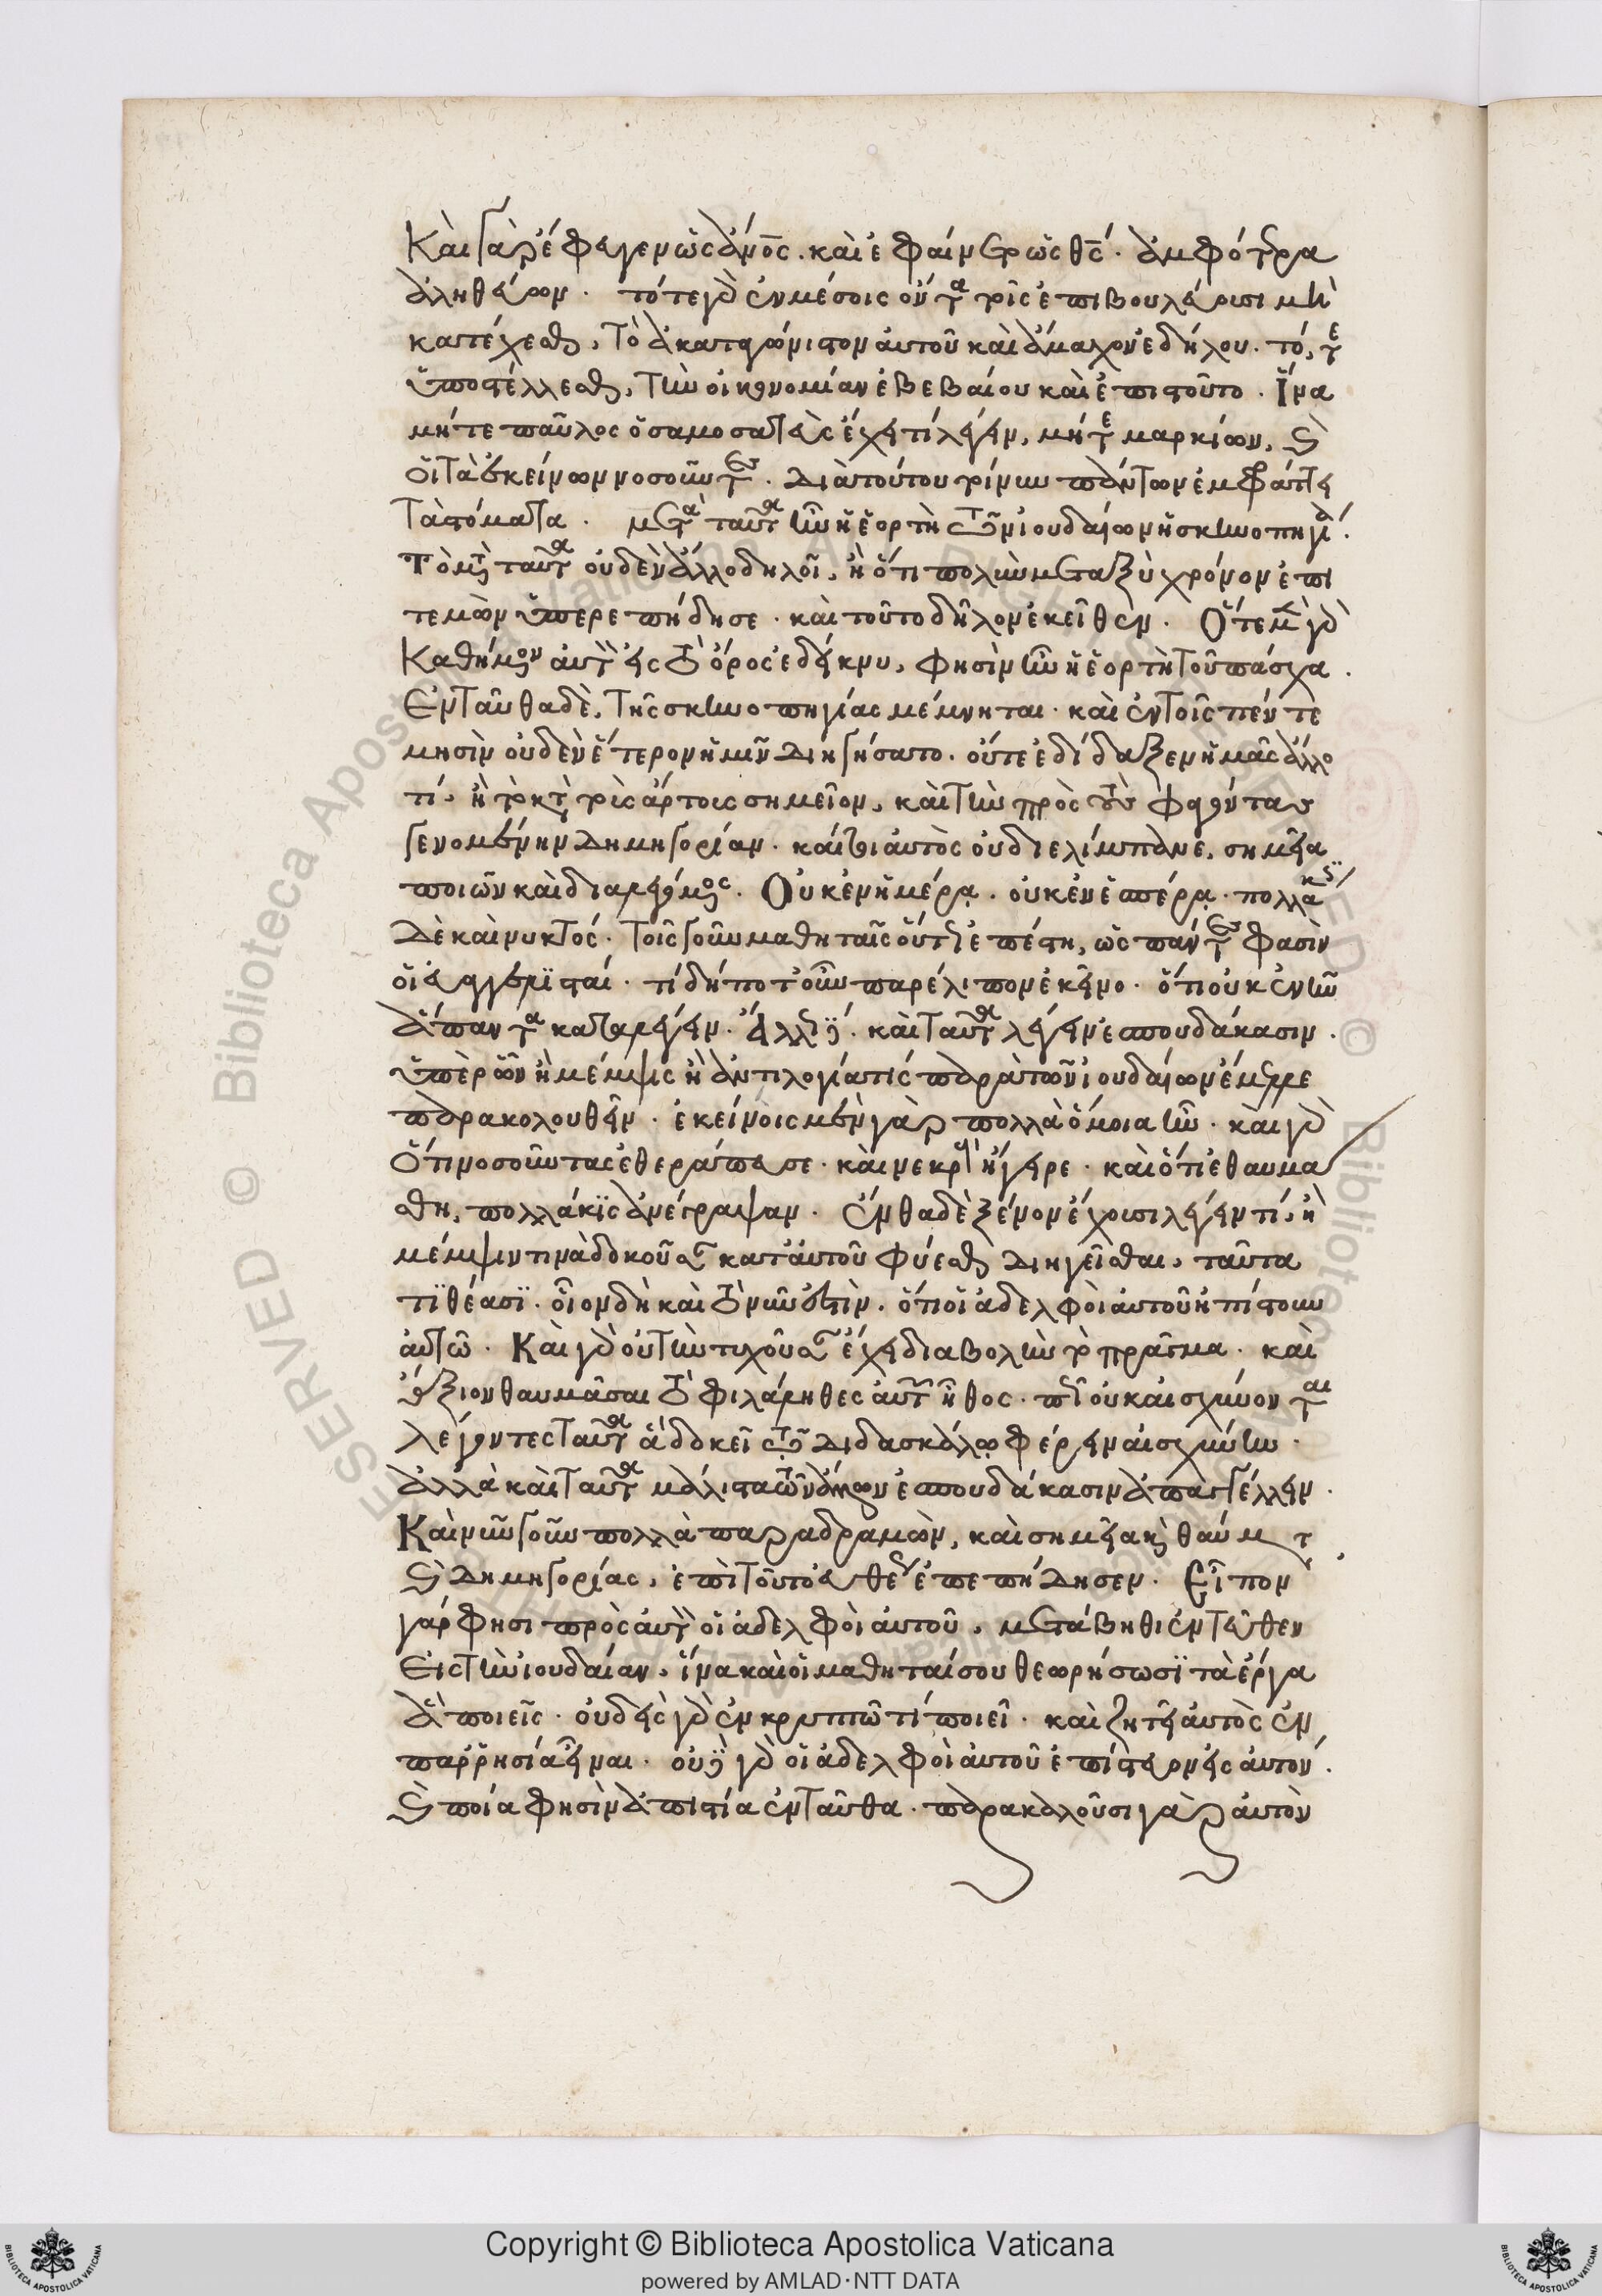 Καὶ γὰρ ἔφυγεν ὡς ἄνος. καὶ ἐφαίνετο ὡς θς. ἀμφότερα
ἀληθεύων. τότε γὰρ ἐν μέσοις ὄντα τοῖς ἐπιβουλεύουσι μὴ
κατέχεσθαι, τὸ ἀκαταγώνιστον αὐτοῦ καὶ ἄμαχον ἐδήλου. τό, τε
ὑποστέλλεσθαι, τὴν οἰκονομίαν ἐβεβαίου καὶ ἐπιστοῦτο. ἵνα
μήτε παῦλος ὁ σαμοσατεὺς ἔχῃ τί λέγειν, μήτε μαρκίων, καὶ
οἱ τὰ ἐκείνων νοσοῦντες. Διὰ τούτου τοίνυν πάντων ἐμφράττει
τὰ στόματα. μετὰ ταῦτα ἦν ἡ ἑορτὴ τῶν ἰουδαίων ἡ σκηνοπηγία.
Τὸ μετὰ ταῦτα οὐδὲν ἄλλο δηλοῖ, ἢ ὅτι πολὺν μεταξὺ χρόνον ἐπι
τεμὼν ὑπερεπήδησε. καὶ τοῦτο δῆλον ἐκεῖθεν. Ὅτε μὲν γὰρ
Καθήμενον αὐτὸν εἰς τὸ ὄρος ἐδείκνυ, φησὶν ἦν ἡ ἑορτὴ τοῦ πάσχα.
Ἐνταῦθα δὲ, τῆς σκηνοπηγίας μέμνηται. καὶ ἐν τοῖς πέντε
μησὶν οὐδὲν ἕτερον ἡμῖν Διηγήσατο. οὔτε ἐδίδαξεν ἡμᾶς ἄλλο
τί, ἢ τὸ κατὰ τοὺς ἄρτους σημεῖον, καὶ τὴν πρὸς τοὺς φαγόντας
γενομένην Δημηγορίαν. καίτοι αὐτὸς οὐ διελίμπανε, σημεῖα
ποιῶν καὶ διαλεγόμενος. Οὐκ ἐν ἡμέρᾳ. οὐκ ἐν ἑσπέρᾳ. πολλάκις
Δὲ καὶ νυκτός. Τοῖς γοῦν μαθηταῖς οὕτως ἐπέστη, ὡς πάντες φασὶν
οἱ εὐαγγελισταί. τί δήποτ' οὖν παρέλιπον ἐκεῖνο. ὅτι οὐκ ἐνῆν
ἅπαντα καταλέγειν. Ἄλλως. καὶ ταῦτα λέγειν ἐσπουδάκασιν.
ὑπὲρ ὧν ἢ μέμψις ἢ ἀντιλογία τις παρὰ τῶν ἰουδαίων ἔμελλε
παρακολουθεῖν. ἐκείνοις μὲν γὰρ πολλὰ ὅμοια ἦν. καὶ γὰρ
Ὅτι νοσοῦντας ἐθεράπευσε. καὶ νεκροὺς ἤγειρε. καὶ ὅτι ἐθαυμά
σθη, πολλάκις ἀνέγραψαν. Ἐνθα δὲ ξένον ἔχουσι λέγειν τί, ἢ
μέμψιν τινὰ δοκοῦσαν κατ' αὐτοῦ φύεσθαι Διηγεῖσθαι, ταῦτα
τιθέασι. οἷον δὴ καὶ τὸ νῦν ἐστὶν. ὅτι οἱ ἀδελφοὶ αὐτοῦ ἠπίστουν
αὐτῷ. Καὶ γὰρ οὐ τὴν τυχοῦσαν ἔχει διαβολὴν τὸ πρᾶγμα. καὶ
ἄξιον θαυμᾶσαι τὸ φιλάληθες αὐτῶν ἦθος. πῶς οὐκ αἰσχύνονται
λέγοντες ταῦτα ἃ δοκεῖ τῷ Διδασκάλῳ φέρειν αἰσχύνην.
ἀλλὰ καὶ ταῦτα μάλιστα τῶν ἄλλων ἐσπουδάκασιν ἀπαγγέλλειν.
Καὶ νῦν γοῦν πολλὰ παραδραμὼν, καὶ σημεῖα καὶ θαύματα,
καὶ Δημηγορίας, ἐπὶ τοῦτο εὐθέως ἐπεπήδησεν. Εἶπον
γάρ φησι πρὸς αὐτὸν οἱ ἀδελφοὶ αὐτοῦ, μετάβηθι ἐντεῦθεν
Εἰς τὴν ἰουδαίαν, ἵνα καὶ οἱ μαθηταί σου θεωρήσωσι τὰ ἔργα
ἃ ποιεῖς. οὐδεὶς γὰρ ἐν κρυπτῶ τί ποιεῖ. καὶ ζητεῖ αὐτὸς ἐν
παρρησία εἶναι. οὐδὲ γὰρ οἱ ἀδελφοὶ αὐτοῦ ἐπίστευον εἰς αὐτόν.
Καὶ ποία φησὶν ἀπιστία ἐνταῦθα. παρακαλοῦσι γὰρ αὐτὸν
Copyright © Biblioteca Apostolica Vaticana
powered by AMLAD·NTT DATA